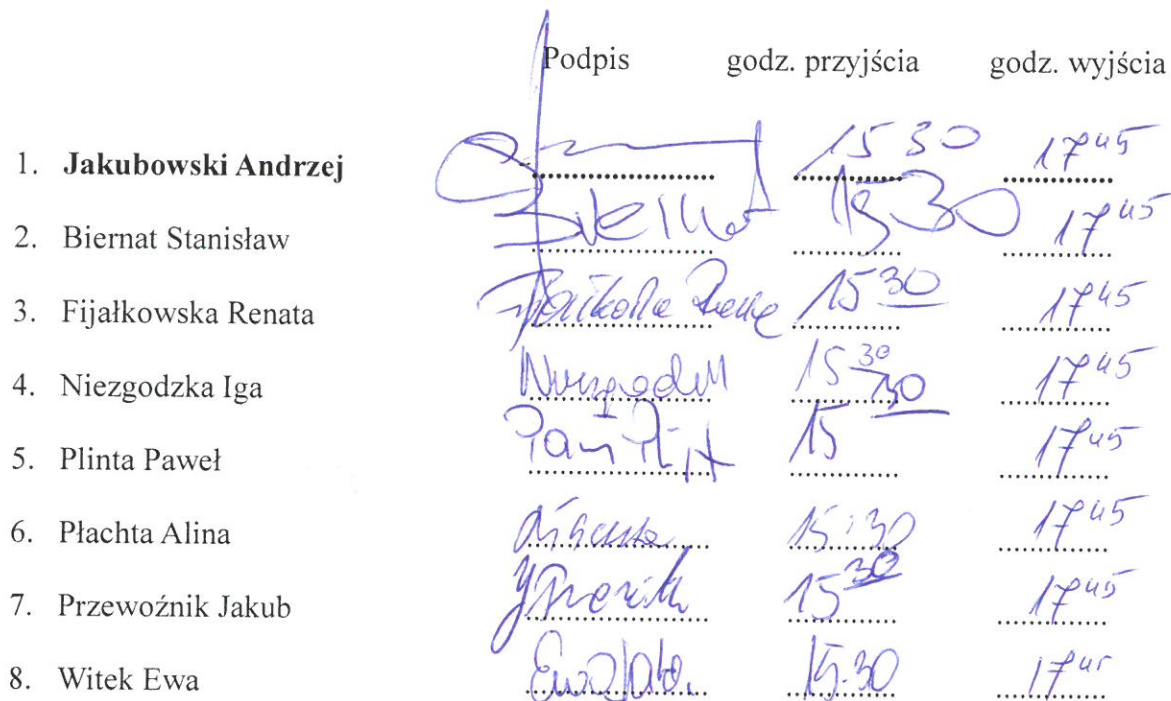 Podpis godz. przyjścia godz. wyjścia
1. Jakubowski Andrzej 15 30 17 45
2. Biernat Stanisław 15 30 17 45
3. Fijałkowska Renata 15 30 17 45
4. Niezgodzka Iga 15 30 17 45
5. Plinta Paweł 15 30 17 45
6. Płachta Alina 15:30 17 45
7. Przewoźnik Jakub 15 30 17 45
8. Witek Ewa 15.30 17 45